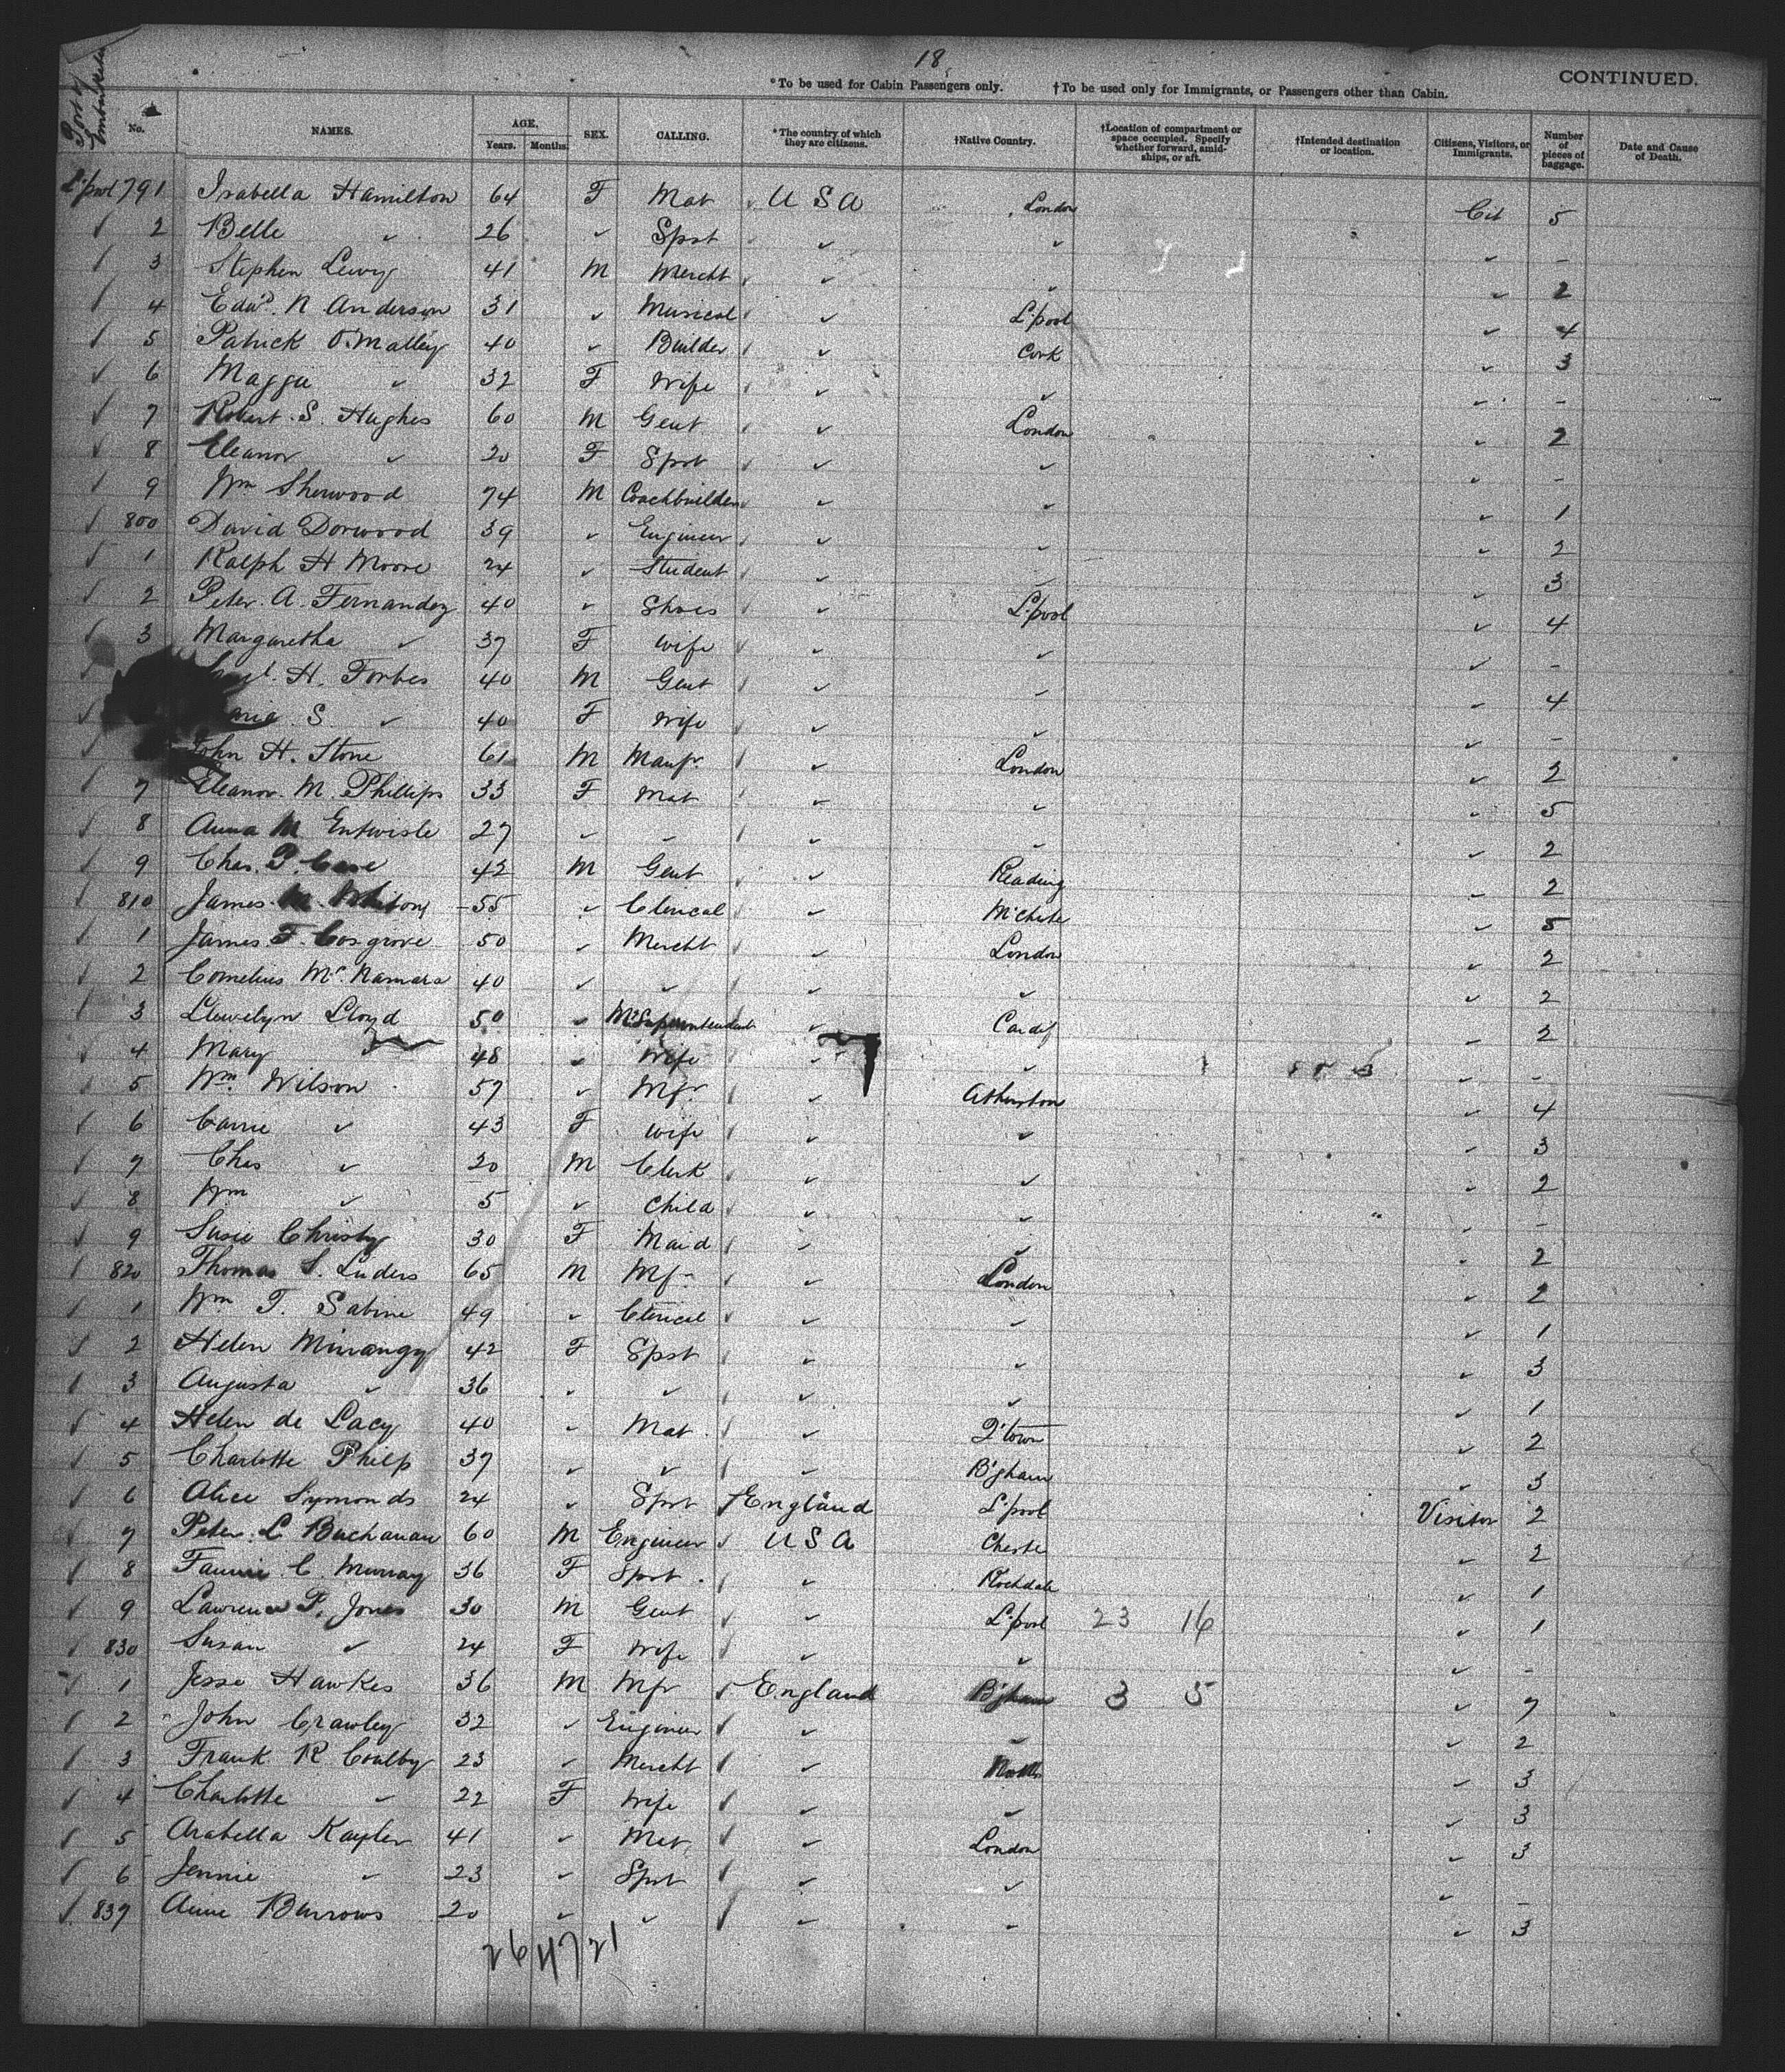 18
*To be used for Cabin Passengers only. †To be used only for Immigrants, or Passengers other than Cabin. CONTINUED.
Port of Embarkation No. NAMES. AGE. Years. Months. SEX. CALLING. *The country of which they are citizens. †Native Country. †Location of compartment or space occupied. Specify whether forward, amidships, or aft. †Intended destination or location. Citizens, Visitors, or Immigrants. Number of pieces of baggage. Date and Cause of Death.
L'pool 791 Isabella Hamilton 64 F Mat U S A London Cit 5
✓ 2 Belle ✓ 26 ✓ Spst ✓ ✓ ✓ -
✓ 3 Stephen 41 M Mercht ✓ ✓ ✓ 2
✓ 4 Edwd. N Anderson 31 ✓ Musical ✓ L'pool ✓ 4
✓ 5 Patrick O'Malley 40 ✓ Builder ✓ Cork ✓ 3
✓ 6 Maggie ✓ 32 F Wife ✓ ✓ ✓ -
✓ 7 Robert S. Hughes 60 M Gent ✓ London ✓ 2
✓ 8 Eleanor ✓ 20 F Spst ✓ ✓ ✓ -
✓ 9 Wm Sherwood 74 M Coachbuilder ✓ ✓ ✓ 1
✓ 800 David Dorwood 39 ✓ Engineer ✓ ✓ ✓ 2
✓ 1 Ralph H Moore 24 ✓ Student ✓ ✓ ✓ 3
✓ 2 Peter A. Fernandez 40 ✓ Shoes ✓ L'pool ✓ 4
✓ 3 Margaretha ✓ 37 F Wife ✓ ✓ ✓ -
✓ H. Forbes 40 M Gent ✓ ✓ ✓ 4
✓ S. ✓ 40 F Wife ✓ ✓ ✓ -
✓ John H. Stone 61 M Manfr ✓ London ✓ 2
✓ 7 Eleanor M. Phillips 33 F Mat ✓ ✓ ✓ 5
✓ 8 Anna M Entwisle 27 ✓ ✓ ✓ ✓ ✓ 2
✓ 9 Chas. P. Case 42 M Gent ✓ Reading ✓ 2
✓ 810 James M. 55 ✓ Clerical ✓ M'chester ✓ 5
✓ 1 James F. Cosgrove 50 ✓ Mercht ✓ London ✓ 2
✓ 2 Cornelius McNamara 40 ✓ ✓ ✓ ✓ ✓ 2
✓ 3 Llewelyn Lloyd 50 ✓ Superintendent ✓ Cardif ✓ 2
✓ 4 Mary 48 ✓ Wife ✓ ✓ ✓ -
✓ 5 Wm. Wilson 57 ✓ Mfr ✓ Atherston ✓ 4
✓ 6 Carrie ✓ 43 F Wife ✓ ✓ ✓ 3
✓ 7 Chas ✓ 20 M Clerk ✓ ✓ ✓ 2
✓ 8 Wm ✓ 5 ✓ Child ✓ ✓ ✓ -
✓ 9 Susie Christy 30 F Maid ✓ ✓ ✓ 2
✓ 820 Thomas S. Luders 65 M Mfr ✓ London ✓ 2
✓ 1 Wm T. Sabine 49 ✓ Clerical ✓ ✓ ✓ 1
✓ 2 Helen 42 F Spst ✓ ✓ ✓ 3
✓ 3 Augusta ✓ 36 ✓ ✓ ✓ ✓ ✓ 1
✓ 4 Helen de Lacy 40 ✓ Mat ✓ Q'town ✓ 2
✓ 5 Charlotte Philp 37 ✓ ✓ ✓ B'gham ✓ 3
✓ 6 Alice Symonds 24 ✓ Spst England L'pool Visitor 2
✓ 7 Peter L Buchanan 60 M Engineer U S A Chester ✓ 2
✓ 8 Fannie C. Murray 36 F Spst ✓ Rochdale ✓ 1
✓ 9 Lawrence P. Jones 30 M Gent ✓ L'pool 23 16 ✓ 1
✓ 830 Susan ✓ 24 F Wife ✓ ✓ ✓ -
✓ 1 Jesse Hawkes 36 M Mfr England B'gham 3 5 ✓ 7
✓ 2 John Crawley 32 ✓ Engineer ✓ ✓ ✓ 2
✓ 3 Frank R Coulby 23 ✓ Mercht ✓ ✓ 3
✓ 4 Charlotte ✓ 22 F Wife ✓ ✓ ✓ 3
✓ 5 Arabella Kayler 41 ✓ Mat ✓ London ✓ 3
✓ 6 Jennie ✓ 23 ✓ Spst ✓ ✓ ✓ -
✓ 837 Annie Burrows 20 ✓ ✓ ✓ ✓ ✓ 3
26 47 21